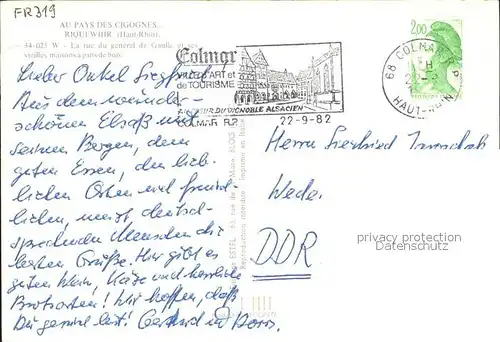 FR319
AU PAYS DES CIGOGNES...
RIQUEWIHR (Haut-Rhin)
34-023 W - La rue du général de Gaulle et ses
vieilles maisons à pans de bois.
Colmar
VILLE D'ART et
de TOURISME
AU COEUR DU VIGNOBLE ALSACIEN
COLMAR R.P.
22-9-82
2,00
68 COLMAR R.P.
HAUT-RHIN
Lieber Onkel Siegfried!
Aus dem wunder-
schönen Elsaß mit
seinen Bergen, dem
guten Essen, den lieb-
lichen Orten und freund-
lichen, meist deutsch-
sprechenden Menschen die
besten Grüße. Hier gibt es
guten Wein, Käse und herrliche
Brotsorten! Wir hoffen, daß
Dir geht es gut!
Herrn Siegfried
Wede.
DDR
privacy protection
Datenschutz
ESTEL
BLOIS
Reproduction interdite
Imprimé en Italie